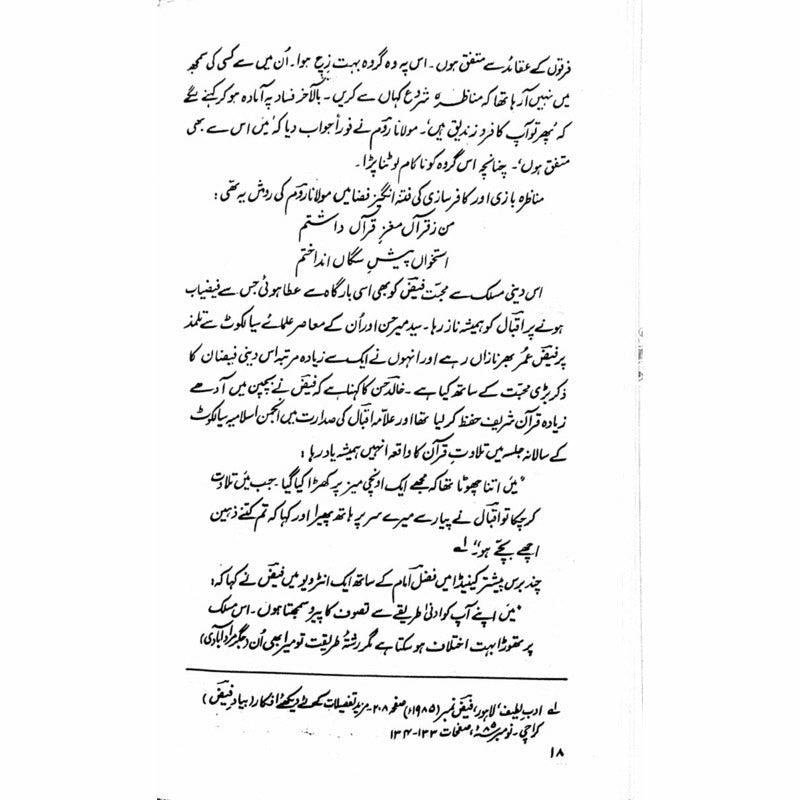 فرقوں کے عقائد سے متفق ہوں۔ اس پہ وہ گروہ بہت زچ ہوا۔ اُن میں سے کسی کی سمجھ
میں نہیں آ رہا تھا کہ مناظرہ شروع کہاں سے کریں۔ بالآخر فساد پہ آمادہ ہو کر کہنے لگے
کہ 'پھر تو آپ کافر و زندیق ہیں'۔ مولانا رومؒ نے فوراً جواب دیا کہ 'میں اس سے بھی
متفق ہوں'۔ چنانچہ اس گروہ کو ناکام لوٹنا پڑا۔
مناظرہ بازی اور کافر سازی کی فتنہ انگیز فضا میں مولانا رومؒ کی روش یہ تھی :
من ز قرآں مغزِ قرآں داشتم
استخواں پیشِ سگاں انداختم
اس دینی مسلک سے محبت فیضؔ کو بھی اسی بارگاہ سے عطا ہوئی جس سے فیضیاب
ہونے پر اقبالؔ کو ہمیشہ ناز رہا۔ سید میر حسن اور اُن کے معاصر علمائے سیالکوٹ سے تلمذ
پر فیضؔ عمر بھر نازاں رہے اور انہوں نے ایک سے زیادہ مرتبہ اس دینی فیضان کا
ذکر بڑی محبت کے ساتھ کیا ہے۔ خالد حسن کا کہنا ہے کہ فیضؔ نے بچپن میں آدھے سے
زیادہ قرآن شریف حفظ کر لیا تھا اور علامہ اقبالؔ کی صدارت میں انجمن اسلامیہ سیالکوٹ
کے سالانہ جلسہ میں تلاوتِ قرآن کا واقعہ انہیں ہمیشہ یاد رہا :
"میں اتنا چھوٹا تھا کہ مجھے ایک اونچی میز پر کھڑا کیا گیا۔ جب میں تلاوت
کر چکا تو اقبالؔ نے پیار سے میرے سر پر ہاتھ پھیرا اور کہا کہ تم کتنے ذہین
اچھے بچّے ہو"۔ ؎۱
چند برس پیشتر کینیڈا میں فضل امام کے ساتھ ایک انٹرویو میں فیضؔ نے کہا کہ :
"میں اپنے آپ کو ادنیٰ طریقے سے تصوف کا پیرو سمجھتا ہوں۔ اس مسلک
پر تھوڑا بہت اختلاف ہو سکتا ہے مگر رشتۂ طریقت تو میرا بھی اُن (جگر مرادآبادی)
؎۱ ادبِ لطیف، لاہور، فیضؔ نمبر (۱۹۸۵ء) صفحہ ۲۰۸۔ مزید تفصیلات کے لئے دیکھئے افکار (بیادِ فیضؔ)
کراچی۔ نومبر ۸۵ء، صفحات ۱۳۳-۱۳۴
۱۸